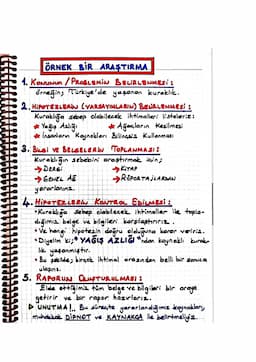 ÖRNEK BİR ARAŞTIRMA
1. KONUNUN / PROBLEMİN BELİRLENMESİ :
Örneğin; Türkiye'de yaşanan kuraklık.
2. HİPOTEZLERİN (VARSAYIMLARIN) BELİRLENMESİ :
Kuraklığa sebep olabilecek ihtimalleri listeleriz:
* Yağış Azlığı * Ağaçların Kesilmesi
* İnsanların Kaynakları Bilinçsiz Kullanması
3. BİLGİ VE BELGELERİN TOPLANMASI :
Kuraklığın sebebini araştırmak için;
→ DERGİ → KİTAP
→ GENEL AĞ → RÖPORTAJLARDAN
yararlanırız.
4. HİPOTEZLERİN KONTROL EDİLMESİ :
• Kuraklığa sebep olabilecek ihtimaller ile topla-
dığımız belge ve bilgileri karşılaştırırız.
• Ve hangi hipotezin doğru olduğuna karar veririz.
• Diyelim ki; "YAĞIŞ AZLIĞI" ndan kaynaklı kurak-
lık yaşanmıştır.
• Bu şekilde; birçok ihtimal arasından belli bir sonuca
ulaşırız.
5. RAPORUN OLUŞTURULMASI :
Elde ettiğimiz tüm belge ve bilgileri bir araya
getirir ve bir rapor hazırlarız.
UNUTMA! Bu süreçte yararlandığımız kaynakları,
mutlaka DİPNOT ve KAYNAKÇA ile belirtmeliyiz.